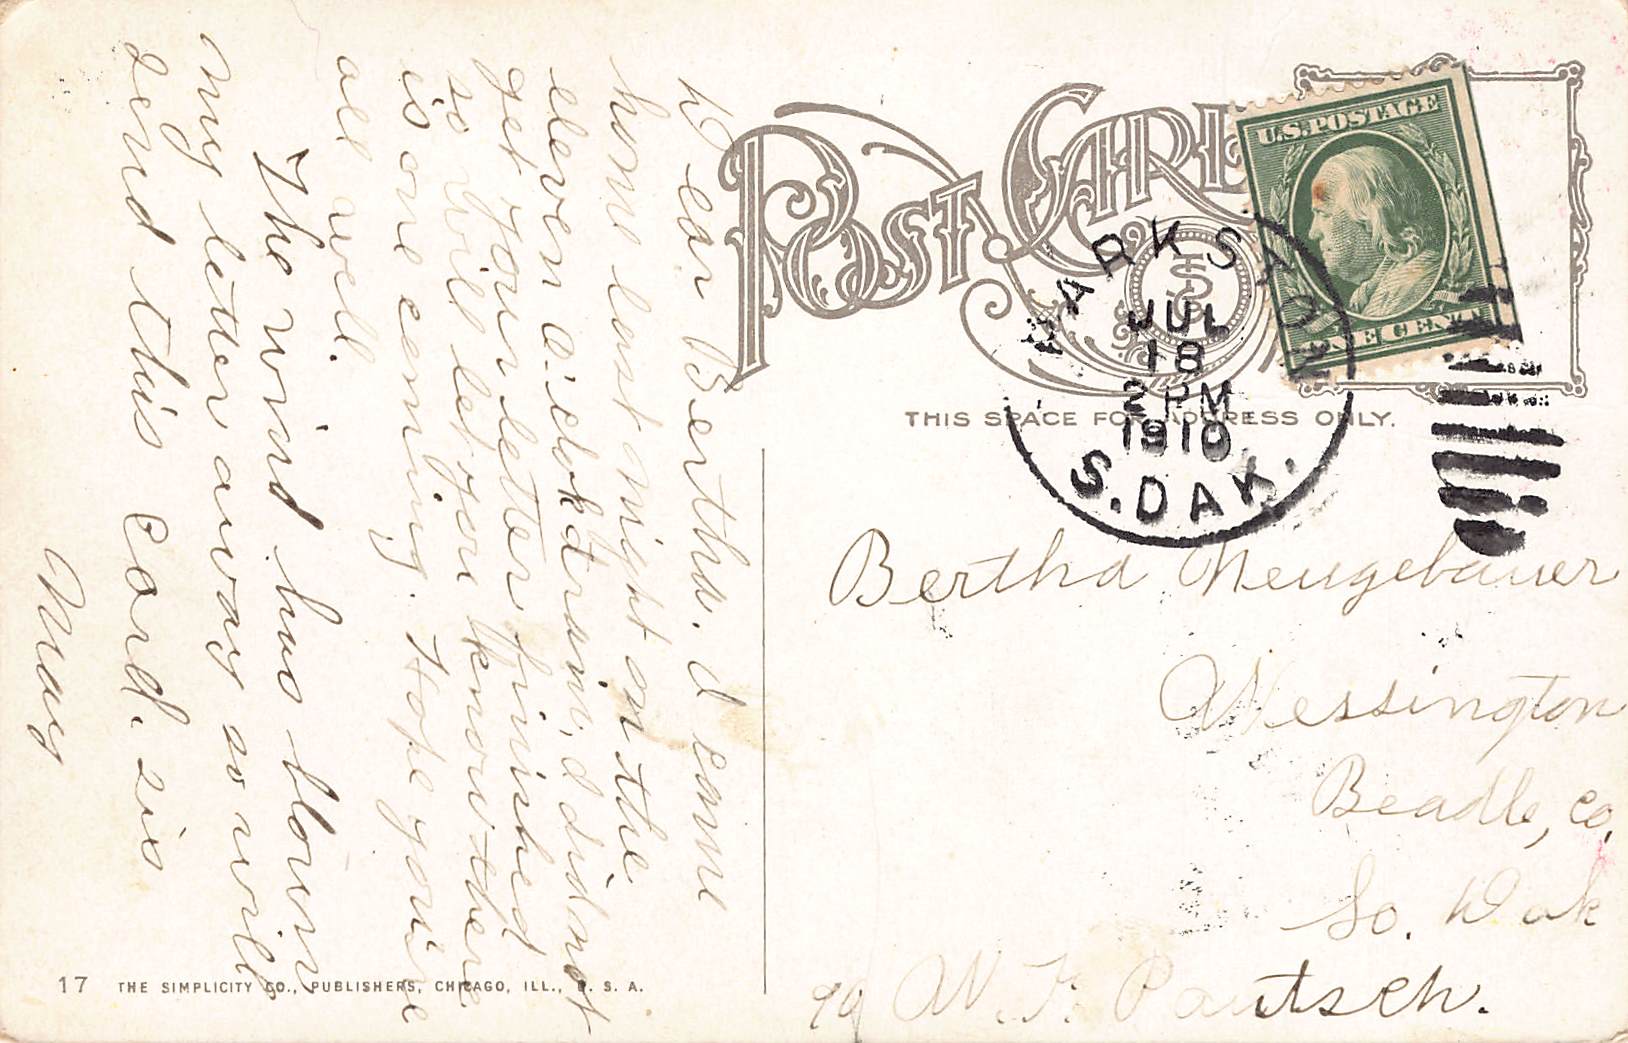 POST CARD
U.S. POSTAGE
ONE CENT
CLARKS
JUL
18
2 PM
1910
S. DAK.
THIS SPACE FOR ADDRESS ONLY.
Dear Bertha. I came
home last night on the
eleven o'clock train, I did not
get your letter finished
so will let you know there
is one coming. Hope you're
all well.
The wind has blown
my letter away so will
send this card. sis
May
Bertha Neugebauer
Wessington
Beadle, Co,
So. Dak
W. F. Pautsch.
17 THE SIMPLICITY CO., PUBLISHERS, CHICAGO, ILL., U. S. A.